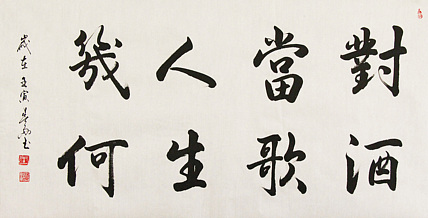 對酒
當歌
人生
幾何
歲在壬寅